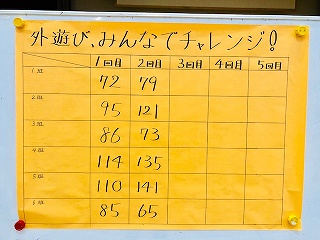 外遊び、みんなでチャレンジ!
1回目 2回目 3回目 4回目 5回目
1班 72 79
2班 95 121
3班 86 73
4班 114 135
5班 110 141
6班 85 65